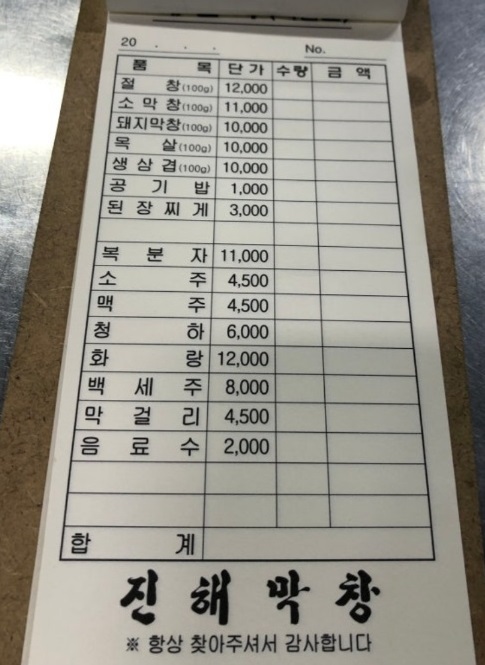 20 . . . No.
품 목 단가 수량 금 액
절 창(100g) 12,000
소 막 창(100g) 11,000
돼지막창(100g) 10,000
목 살(100g) 10,000
생 삼 겹(100g) 10,000
공 기 밥 1,000
된 장 찌 게 3,000
복 분 자 11,000
소 주 4,500
맥 주 4,500
청 하 6,000
화 랑 12,000
백 세 주 8,000
막 걸 리 4,500
음 료 수 2,000
합 계
진해막창
※ 항상 찾아주셔서 감사합니다